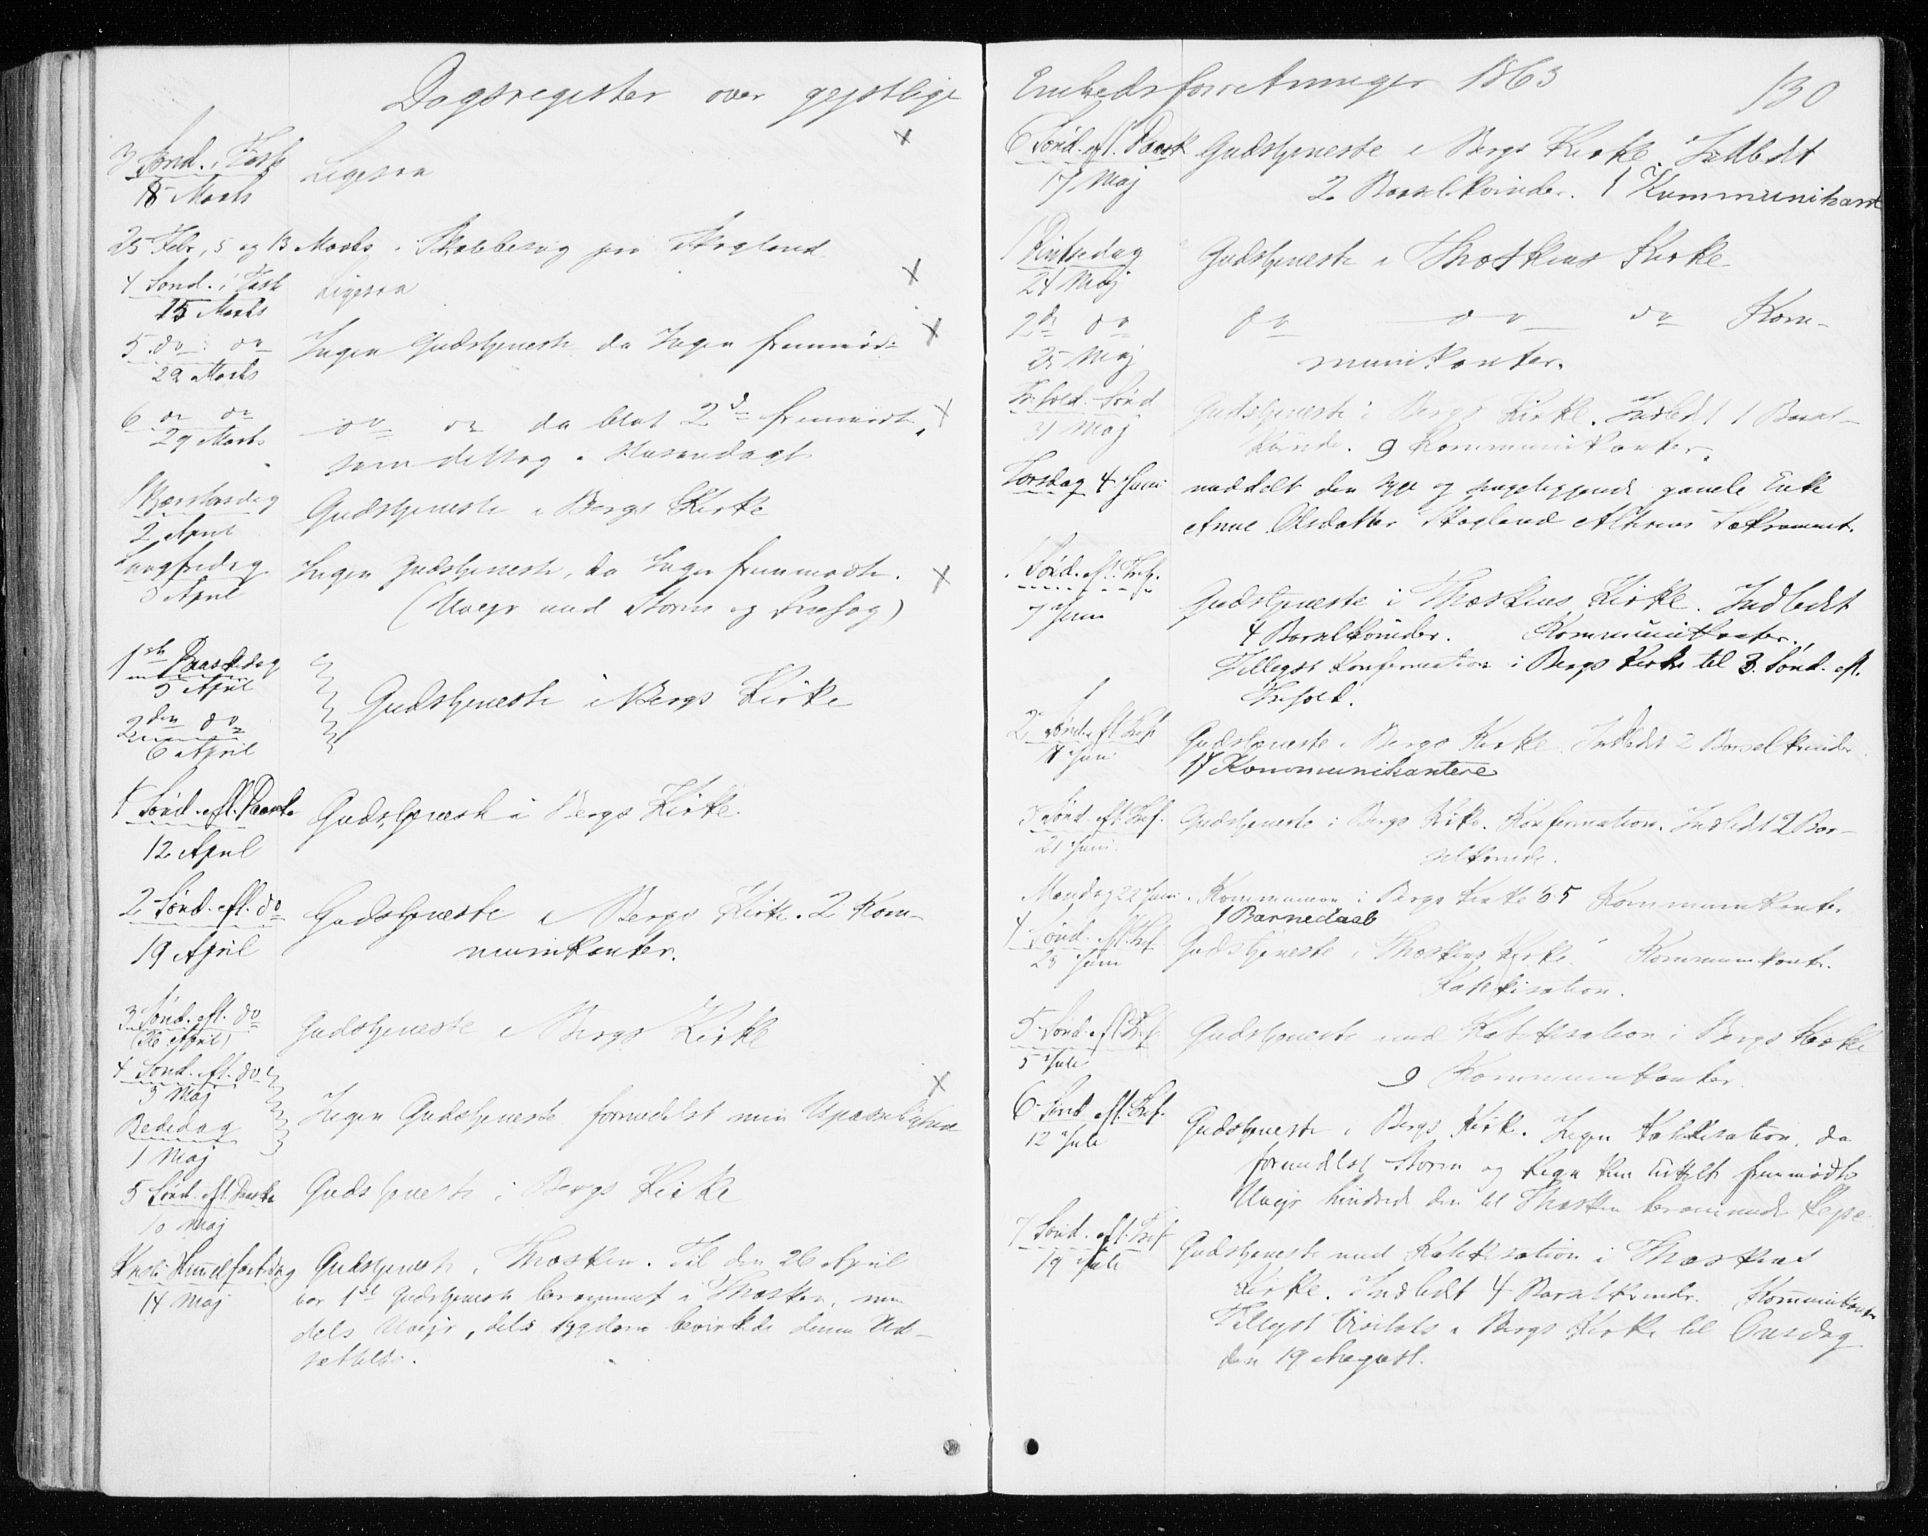 Dagsregister over gejstlige
3 Sønd. i Fast
8 Marts
Ligesaa
25 Febr, 5 og 13 Marts i Skolebesøg paa Skogland
4 Sønd. i Fast
15 Marts
Ligesaa
5 do do
22 Marts
Ingen Gudstjeneste da Ingen fremmødt
6 do do
29 Marts
do do da blot 2 fremmødte,
som deltog i Husandagt
Skjærtorsdag
2 April
Gudstjeneste i Bergs Kirke
Langfredag
3 April
Ingen Gudstjeneste, da Ingen fremmødte.
(Uvejr med Storm og Snefog)
1ste Paaskedag
5 April
2den do
6 April
Gudstjeneste i Bergs Kirke
1 Sønd. eft. Paaske
12 April
Gudstjeneste i Bergs Kirke.
2 Sønd. eft. do
19 April
Gudstjeneste i Bergs Kirke. 2 Kom-
munikanter.
3 Sønd. eft. do
(26 April)
Gudstjeneste i Bergs Kirke
4 Sønd. eft. do
3 Maj
Bededag
1 Maj
Ingen Gudstjeneste formedelst min Upasselighed
5 Sønd. eft. Paaske
10 Maj
Gudstjeneste i Bergs Kirke
Kristi Himmelfartsdag
14 Maj
Gudstjeneste i Thorsken. Til den 26 April
var 1st Gudstjeneste berammet i Thorsken, men
dels Uvejr, dels Sygdom bevirkede dennes Ud-
sættelse.
Embedsforretninger 1863
130
6 Sønd. eft. Paask
17 Maj
Gudstjeneste i Bergs Kirke. Indledt
2 Barselkvinder. 1 Kommunikant
1 Pintsedag
24 Maj
Gudstjeneste i Thorskens Kirke
2den do
25 Maj
do do do Kom-
munikanter.
Trefold. Sønd
31 Maj
Gudstjeneste i Bergs Kirke. Indledt 1 Barsel-
kvinde. 9 Kommunikanter.
Torsdag 4 Juni
meddelt den syge og sengeliggende gamle Enke
Anne Olsdatter Skogland Alterens Sakrament.
1 Sønd. eft. Tref.
7 Juni
Gudstjeneste i Thorskens Kirke. Indledt
4 Barselkvinder. Kommunikanter.
Tillyst Konfirmation i Bergs Kirke til 3. Sønd. eft.
Trefold.
2 Sønd. eft. Tref.
Juni
Gudstjeneste i Bergs Kirke. Indledt 2 Barselkvinder.
17 Kommunikantere
3 Sønd. eft. Tref.
21 Juni.
Gudstjeneste i Bergs Kirke. Konfirmation. Indledt 2 Bar-
selkvinder.
Mandag 22 Juni
Kommunion i Bergs Kirke 65 Kommunikanter.
1 Barnedaab
4 Sønd. eft. Tref.
28 Juni
Gudstjeneste i Thorskens Kirke. Kommunikanter.
Katekisation.
5 Sønd. eft. Tref
5 Juli
Gudstjeneste med Katekisation i Bergs Kirke
9 Kommunikanter.
6 Sønd. eft. Tref.
12 Juli
Gudstjeneste i Bergs Kirke. Ingen Katekisation, da
formedelst Storm og Regn kun faa fremmødte
Uvejr hindrede den til Thorsken berammede Rejse
7 Sønd. eft. Tref
19 Juli
Gudstjeneste med Katekisation i Thorskens
Kirke. Indledt 4 Barselkvinder. Kommunikanter
Tillyst Visitats i Bergs Kirke til Onsdag
den 19 August.